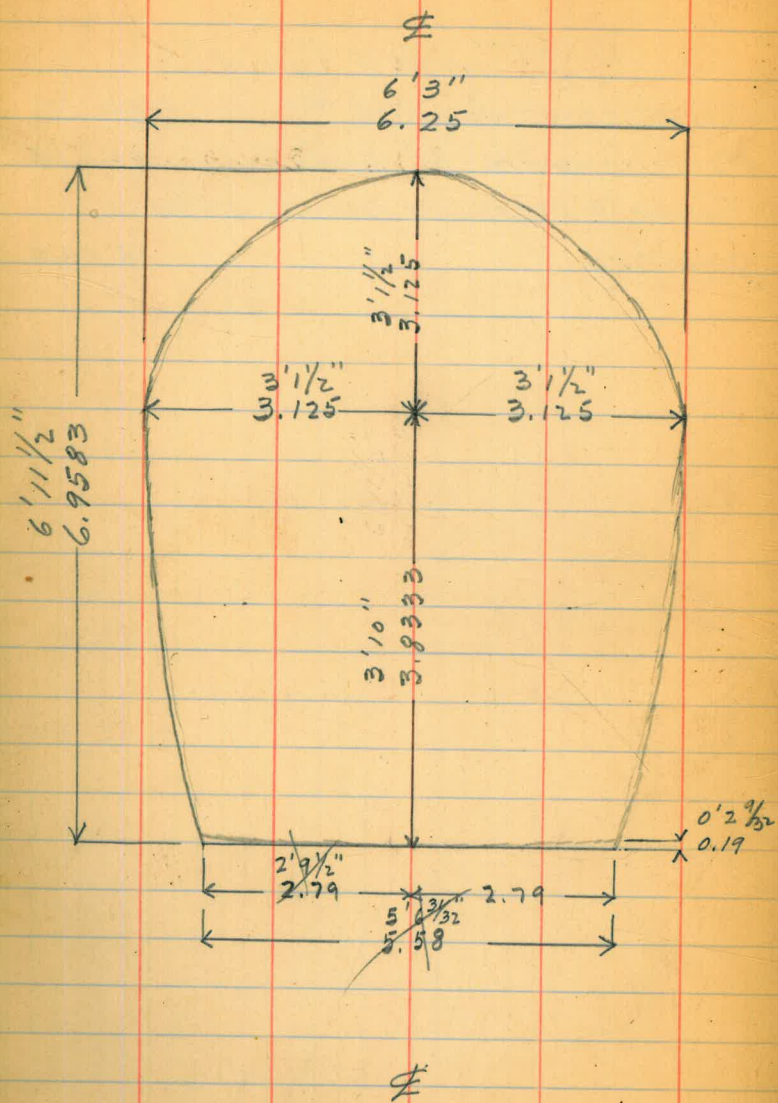 ℄
6'3"
6.25
3'1½"
3.125
3'1½"
3.125
3'1½"
3.125
6'11½"
6.9583
3'10"
3.8333
0'2 9/32
0.19
2'9½"
2.79
2.79
5'6 31/32"
5.58
℄